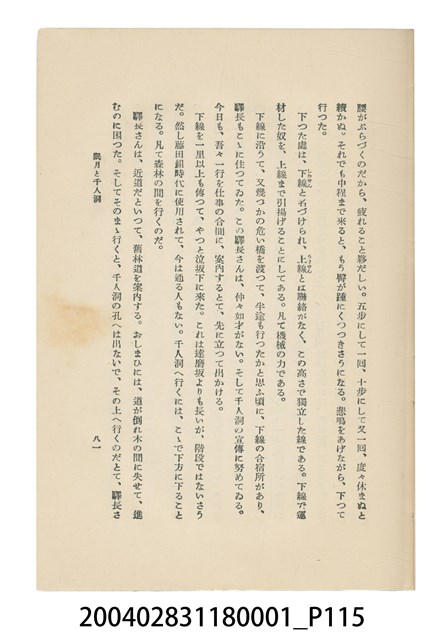 腰がぶらづくのだから、疲れること夥だしい。五歩にして一回、十歩にして又一回、度々休まぬと
續かぬ。それでも中程まで來ると、もう臀が踵にくつつきさうになる。悲鳴をあげながら、下つて
行つた。
下つた處は、下線と名づけられ、上線とは聯絡がなく、この高さで獨立した線である。下線で運
材した奴を、上線まで引揚げることにしてある。凡て機械の力である。
下線に沿うて、又幾つかの危い橋を渡つて、半途も行つたかと思ふ頃に、下線の合宿所があり、
驛長もこゝに住つてゐた。この驛長さんは、仲々如才がない。そして千人洞の宣傳に努めてゐる。
今日も、吾々一行を仕事の合間に、案内するとて、先に立つて出かける。
下線を一里以上も傳つて、やつと泣坂下に來た。これは達磨坂よりも長いが、階段ではないさう
だ。然し藤田組時代に使用されて、今は通る人もない。千人洞へ行くには、こゝで下方に下ること
になる。凡て森林の間を行くのだ。
驛長さんは、近道だといつて、舊林道を案内する。おしまひには、道が倒れ木の間に失せて、進
むのに困つた。そしてそのまゝ行くと、千人洞の孔へは出ないで、その上へ行くのだとて、驛長さ
月と千人洞
八一
200402831180001_P115